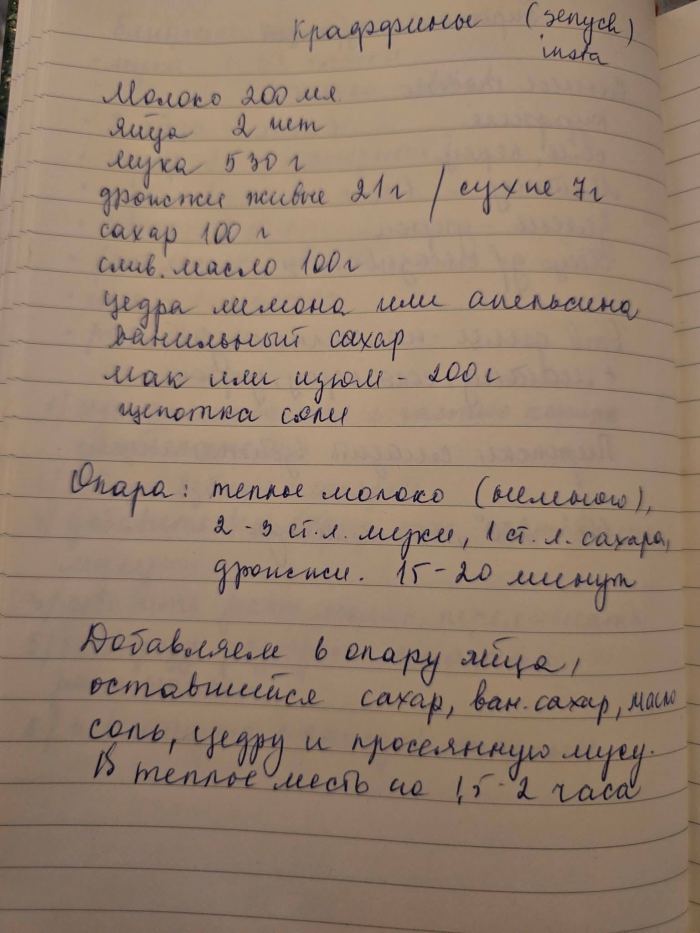 Краффины (зепусн)
insta
Молоко 200 мл
яйца 2 шт
мука 530 г
дрожжи живые 21 г / сухие 7 г
сахар 100 г
слив. масло 100 г
цедра лимона или апельсина
ванильный сахар
мак или изюм - 200 г
щепотка соли
Опара: теплое молоко (немного),
2-3 ст.л. муки, 1 ст. л. сахара,
дрожжи. 15-20 минут
Добавляем в опару яйца,
оставшийся сахар, ван. сахар, масло
соль, цедру и просеянную муку.
В теплое место на 1,5-2 часа